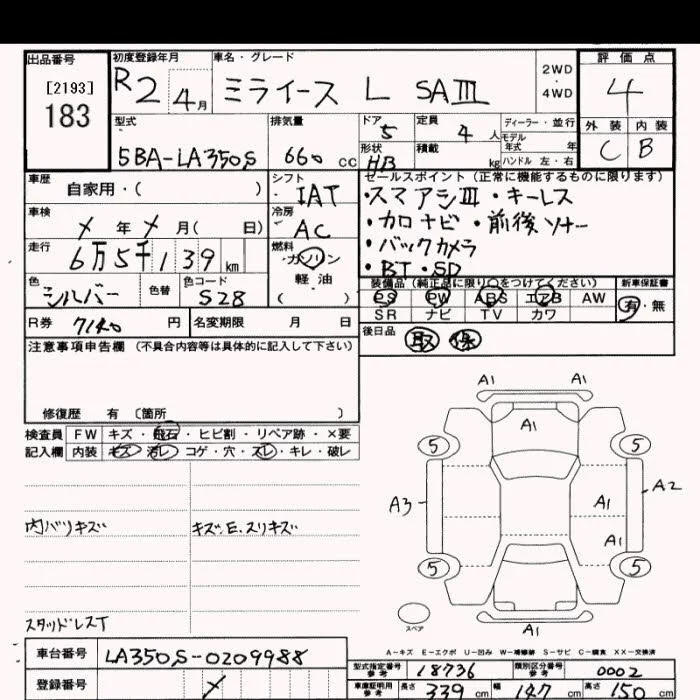 出品番号
[2193]
183
初度登録年月
R2 4月
車名・グレード
ミライース L SAⅢ
2WD
4WD
評価点
4
型式
5BA-LA350S
排気量
660 cc
ドア
5
定員
4 人
ディーラー・並行
モデル
年式 年
形状
HB
積載
kg
ハンドル 左・右
外装 内装
C B
車歴
自家用・( )
シフト
IAT
セールスポイント (正常に機能するものに限ります)
・スマアシⅢ・キーレス
・カロナビ・前後ソナー
・バックカメラ
・BT・SD
車検
メ 年 メ 月( 日)
冷房
AC
走行
6万5千139 km
燃料
ガソリン
軽油
( )
色
シルバー
色替
色コード
S28
装備品 (純正品に限り○をつけてください)
PS PW ABS エアB AW
SR ナビ TV カワ
新車保証書
有・無
R券 7140 円
名変期限 月 日
後日品
取 保
注意事項申告欄 (不具合内容等は具体的に記入して下さい)
修復歴 有 〔箇所 〕
検査員
記入欄
FW キズ・飛石・ヒビ割・リペア跡・×要
内装 キズ・汚レ・コゲ・穴・スレ・キレ・破レ
内バリキズ
キズ、E、スリキズ
スタッドレスT
A1 A1
A1
5 5
A3 A1 A2
A1
5 5
A1
スペア
A-キズ E-エクボ U-凹み W-補修跡 S-サビ C-腐食 XX-交換済
車台番号
LA350S-0209988
登録番号
メ
型式指定番号
参考
18736
類別区分番号
参考
0002
車庫証明用
参考
長さ 339 cm 幅 147 cm 高さ 150 cm